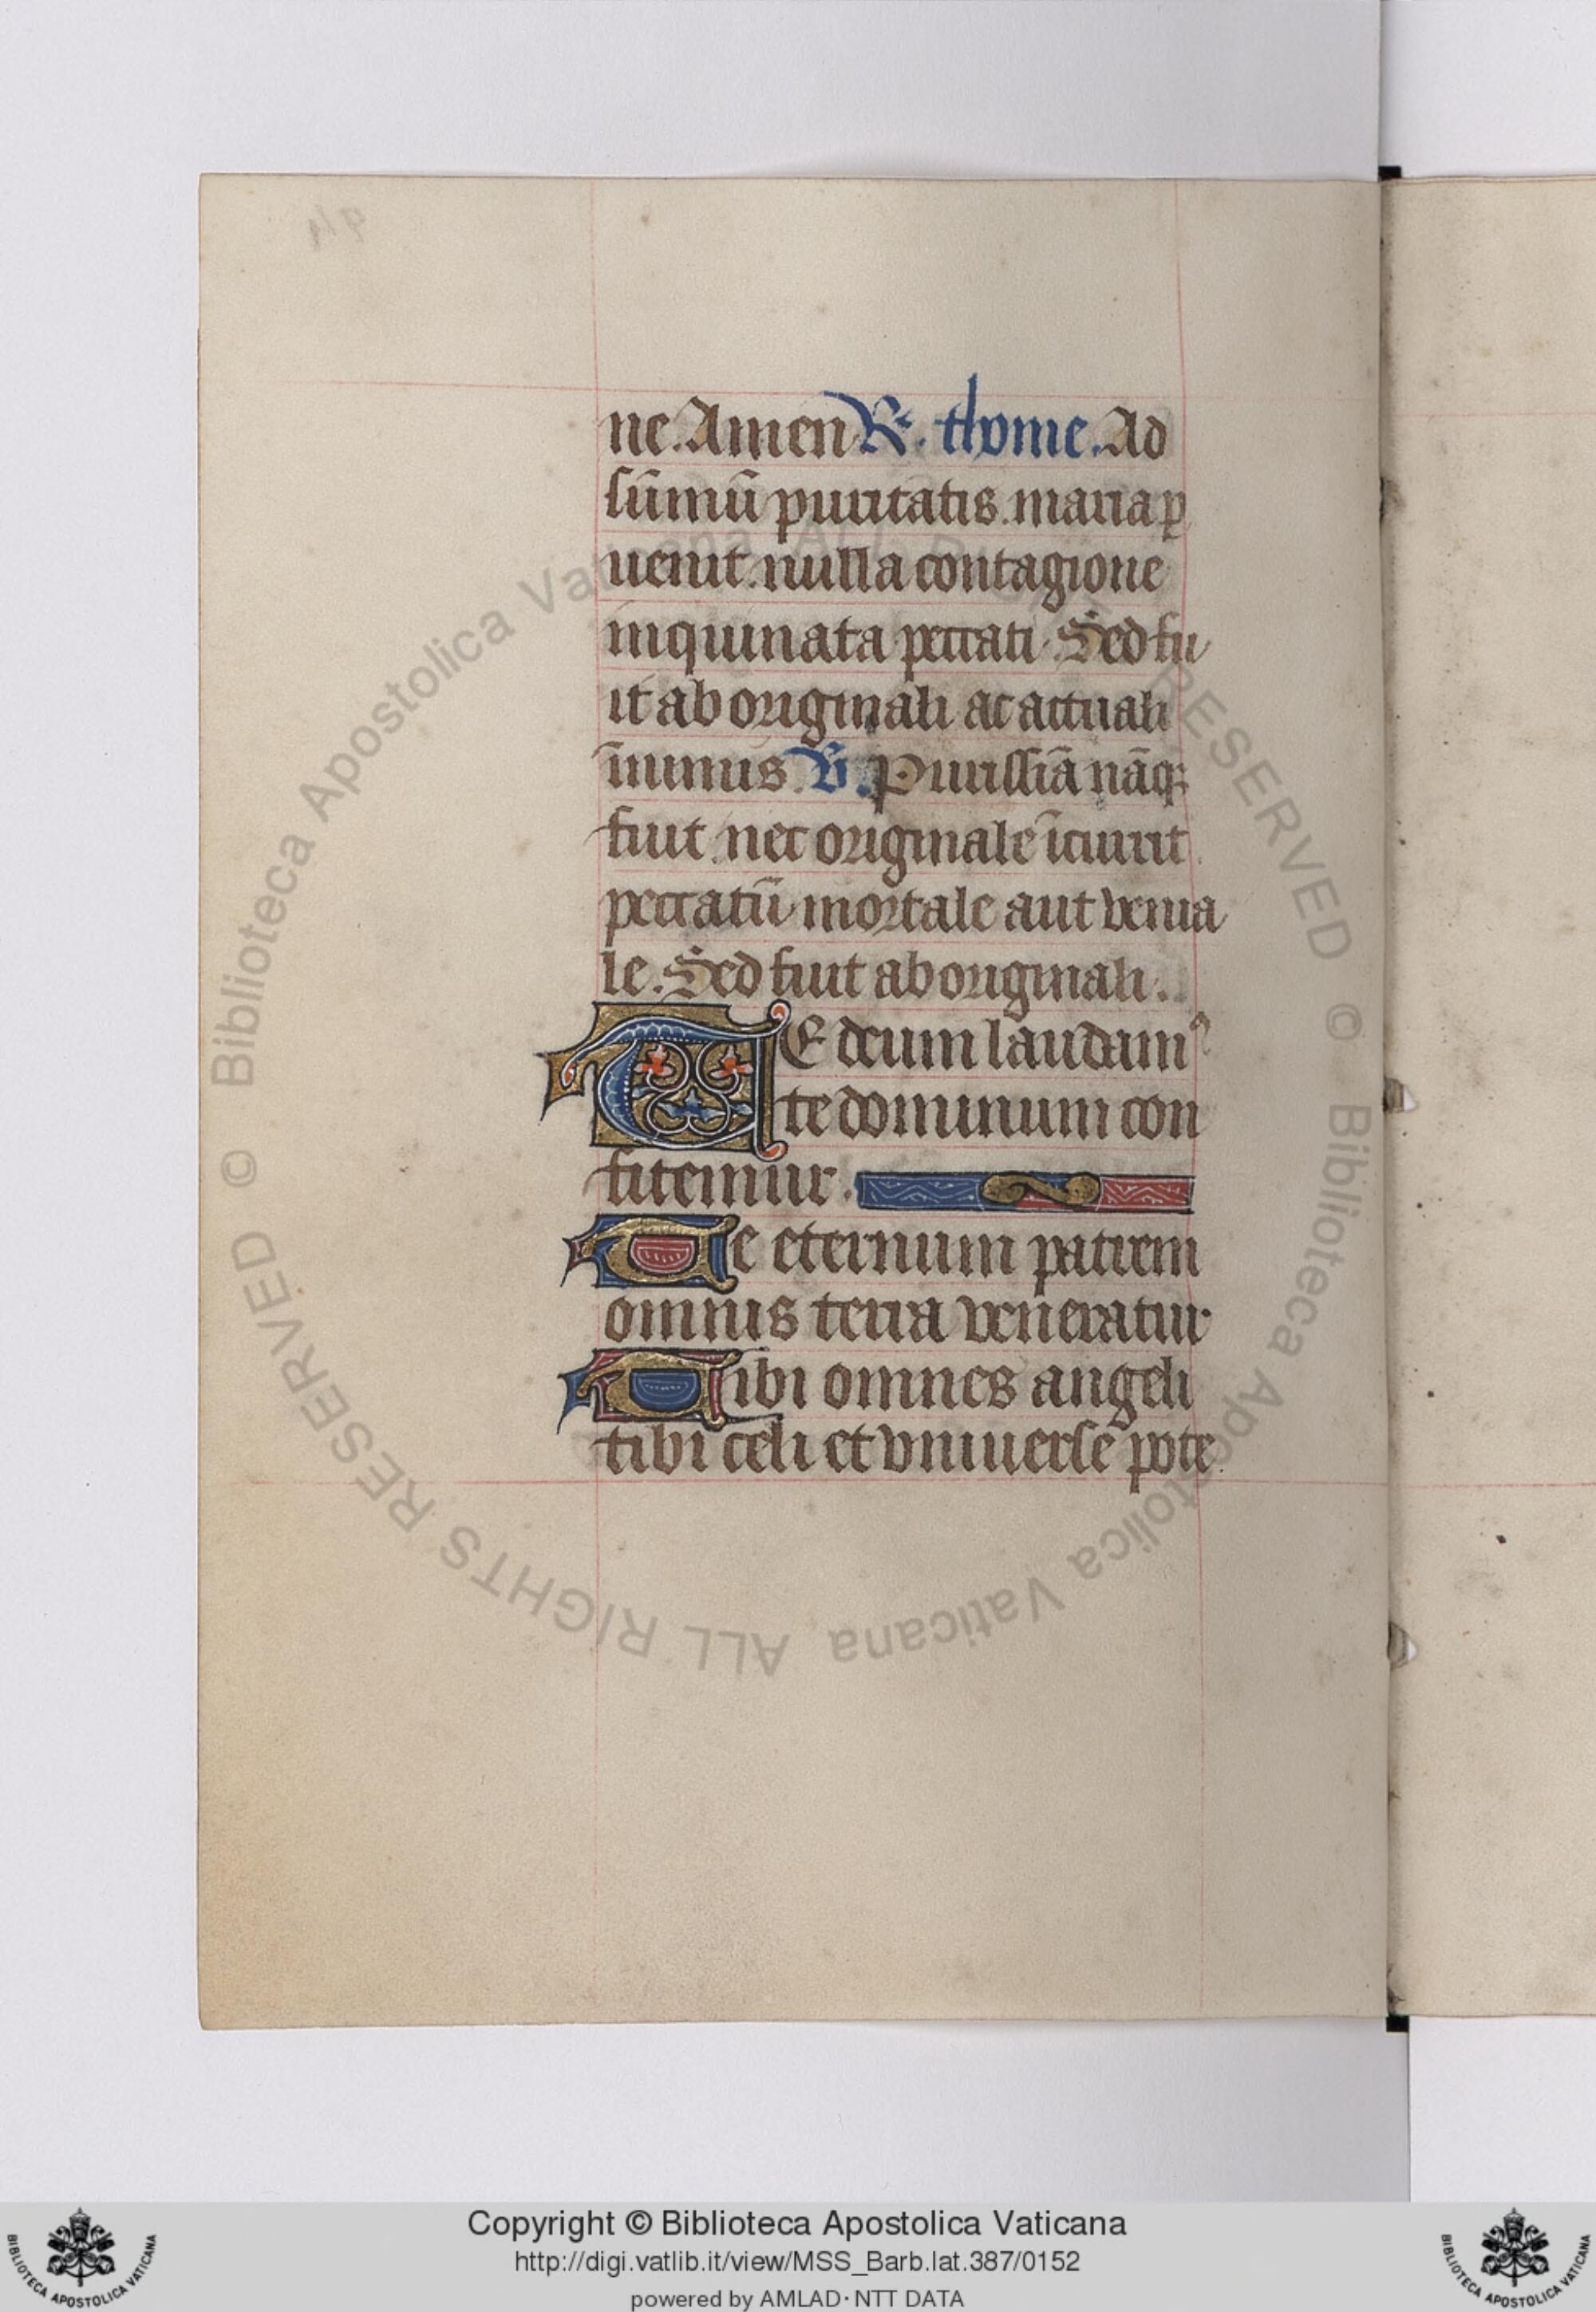 ne. Amen R. thome. Ad
sūmū puritatis. maria ꝑ
uenit. nulla contagione
inquinata peccati. Sed fu
it ab originali ac actuali
īmunis. V. Purissīā nāqꝫ
fuit. nec originale īcurrit
peccatū mortale aut venia
le. Sed fuit ab originali.
TE deum laudamꝰ
te dominum con
fitemur.
Te eternum patrem
omnis terra veneratur
Tibi omnes angeli
tibi celi et vniuerse pote
© Biblioteca Apostolica Vaticana ALL RIGHTS RESERVED © Biblioteca Apostolica Vaticana ALL RIGHTS RESERVED
Copyright © Biblioteca Apostolica Vaticana
http://digi.vatlib.it/view/MSS_Barb.lat.387/0152
powered by AMLAD·NTT DATA
BIBLIOTECA APOSTOLICA VATICANA
BIBLIOTECA APOSTOLICA VATICANA